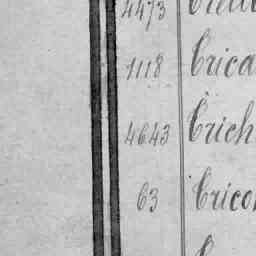 4473
1118 Crica
4643 Crich
63 Cricol